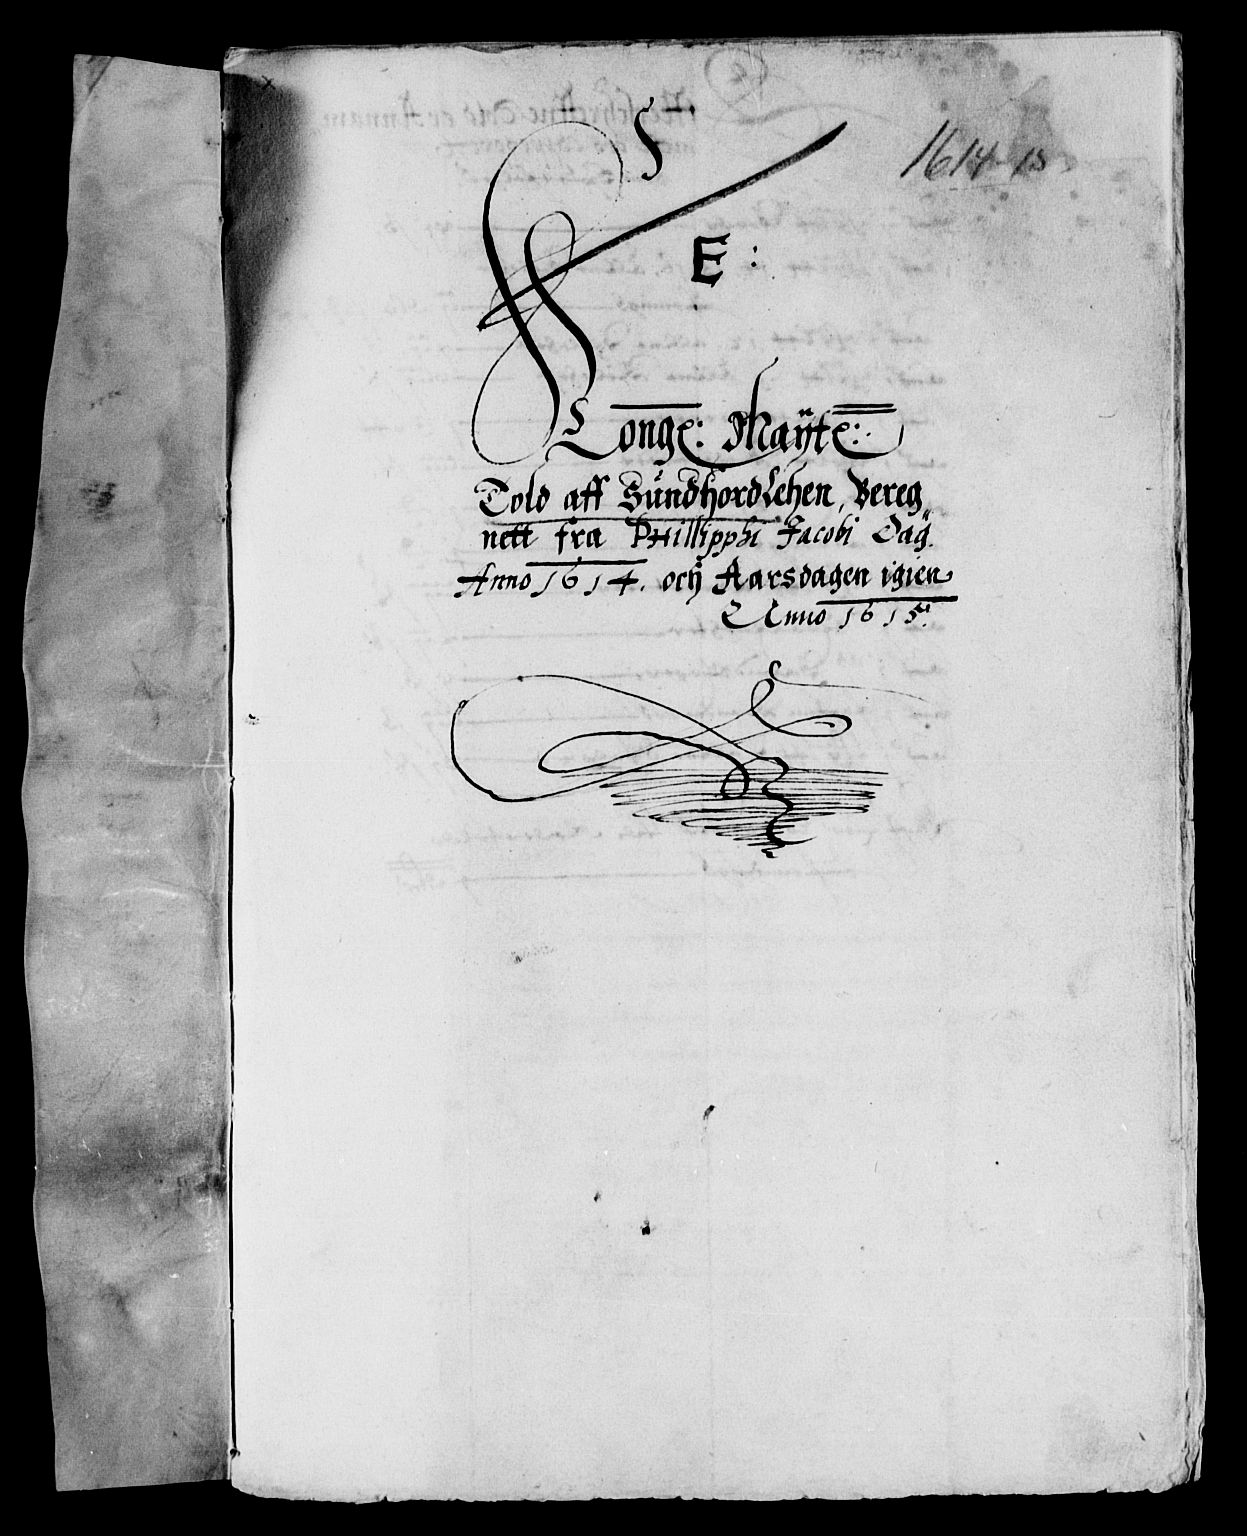 1614-15
E:
Konge: Maÿtz:
Told aff Sündhordlehen, Bereg
nett fra Phillipphi Jacobi Dag
Anno 1614. ocḧ Aarsdagen igien
Anno 1615.